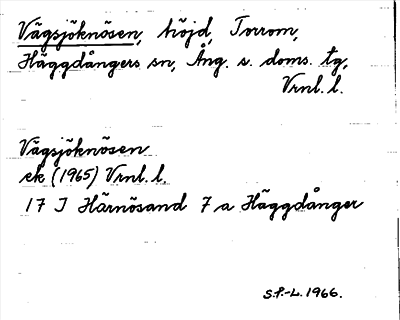 Vägsjöknösen, höjd, Torrom,
Häggdångers sn, Ång. s. doms. tg,
Vrnl. l.
Vägsjöknösen
ek (1965) Vrnl. l.
17 J Härnösand 7 a Häggdånger
S.P.-L. 1966.